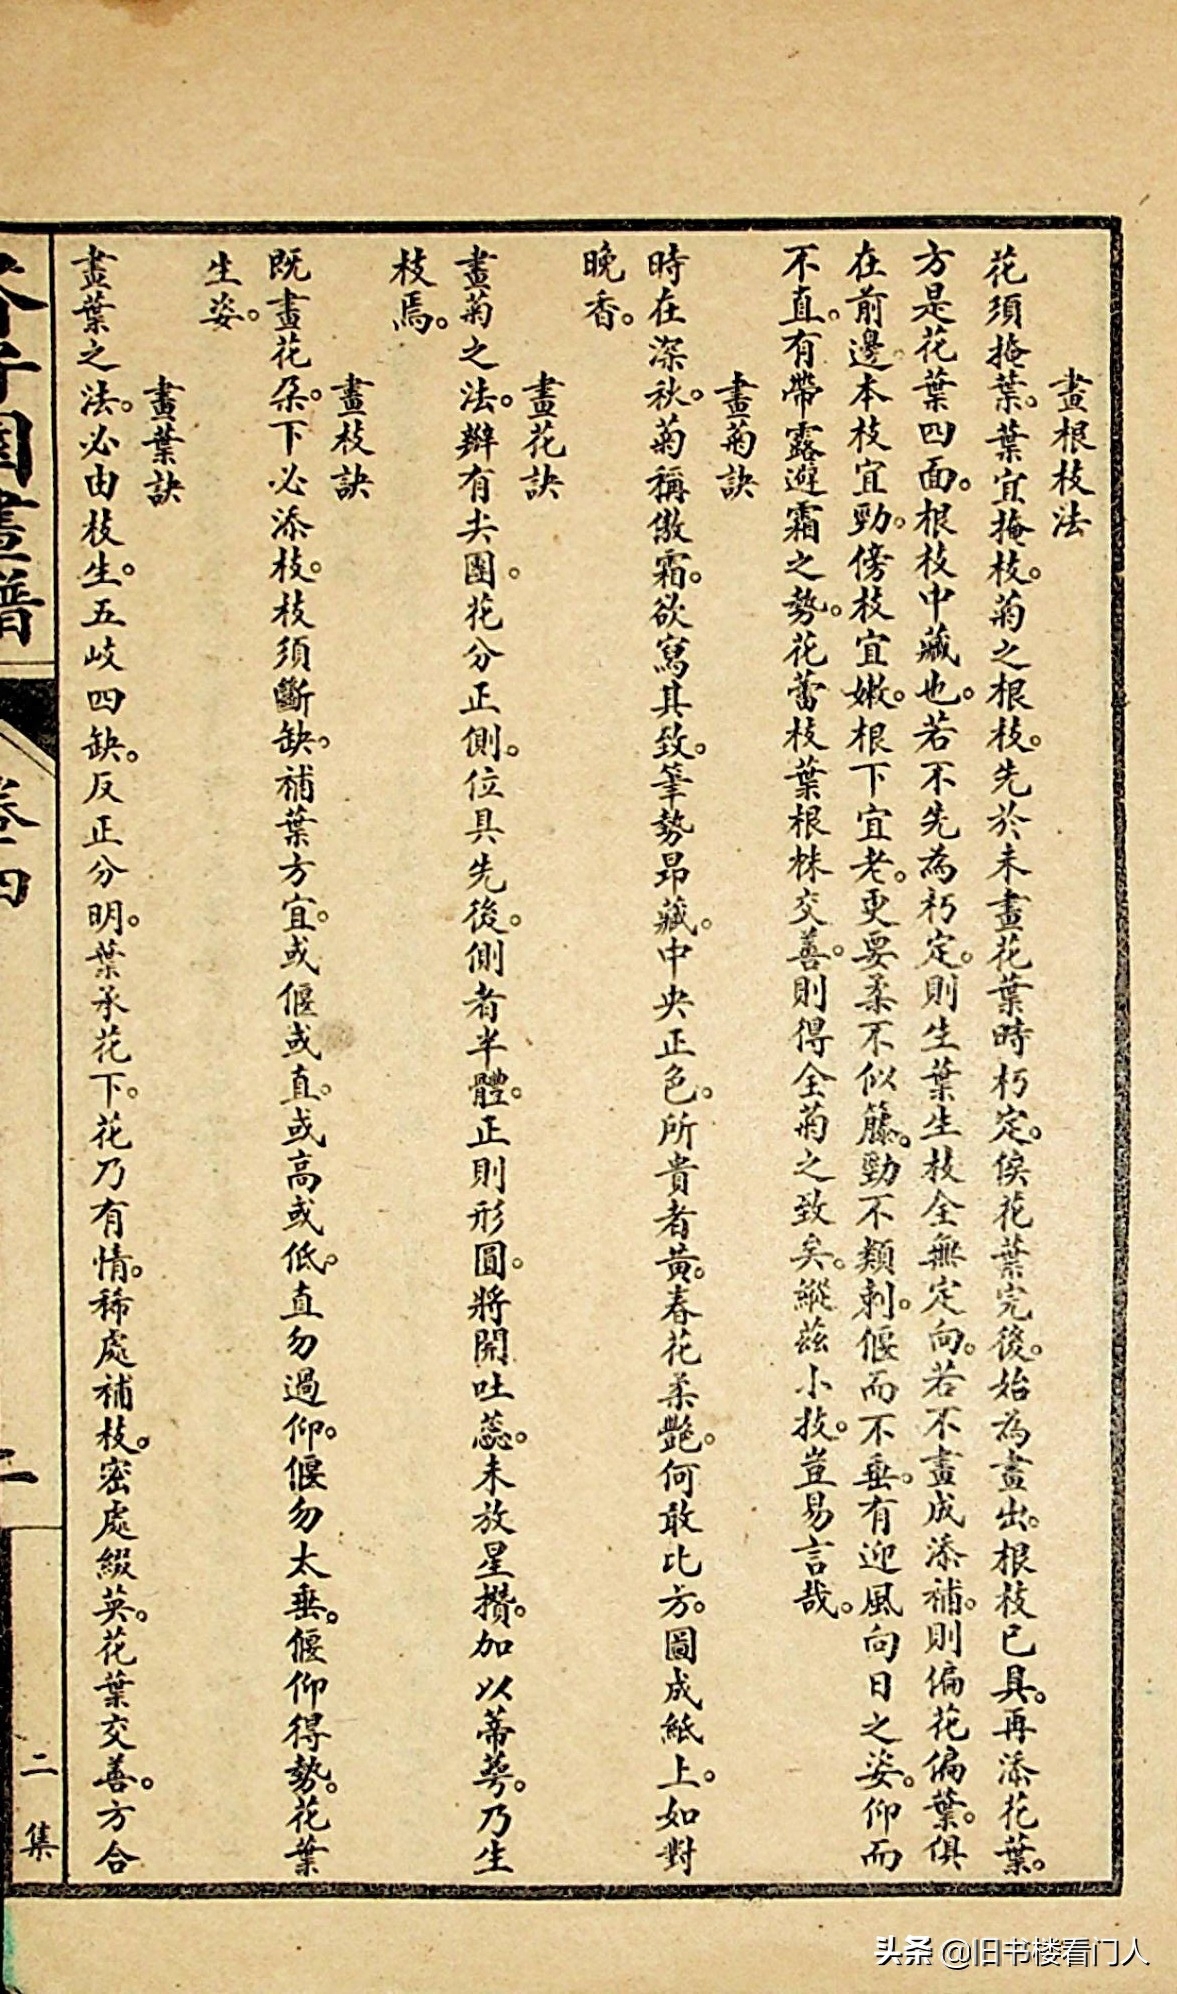 畫根枝法
花須掩葉。葉宜掩枝。菊之根枝。先於未畫花葉時朽定。俟花葉完後。始為畫出。根枝已具。再添花葉。
方是花葉四面。根枝中藏也。若不先為朽定。則生葉生枝全無定向。若不畫成添補。則偏花偏葉。俱
在前邊。本枝宜勁。傍枝宜嫩。根下宜老。更要柔不似籐。勁不類刺。偃而不垂。有迎風向日之姿。仰而
不直。有帶露避霜之勢。花蕾枝葉根株交善。則得全菊之致矣。縱茲小技。豈易言哉。
畫菊訣
時在深秋。菊稱傲霜。欲寫其致。筆勢昂藏。中央正色。所貴者黃。春花柔艷。何敢比方。圖成紙上。如對
晚香。
畫花訣
畫菊之法。瓣有尖團。花分正側。位具先後。側者半體。正則形圓。將開吐蕊。未放星攢。加以蒂萼。乃生
枝焉。
畫枝訣
既畫花朶。下必添枝。枝須斷缺。補葉方宜。或偃或直。或高或低。直勿過仰。偃勿太垂。偃仰得勢。花葉
生姿。
畫葉訣
畫葉之法。必由枝生。五岐四缺。反正分明。葉承花下。花乃有情。稀處補枝。密處綴英。花葉交善。方合
芥子園畫譜
卷四
二集
头条 @旧书楼看门人